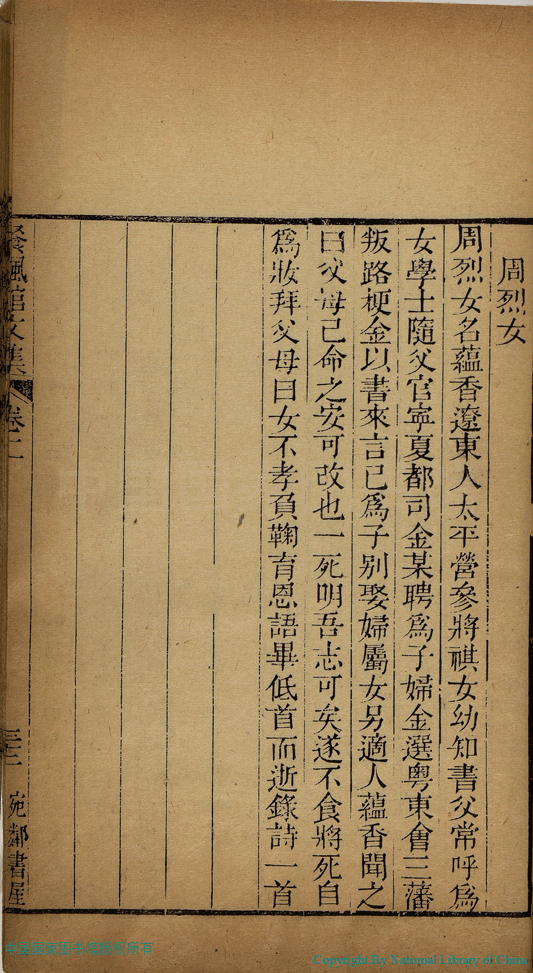 周烈女
周烈女名蘊香遼東人太平營參將祺女幼知書父常呼爲
女學士隨父官寧夏都司金某聘爲子婦金選粵東會三藩
叛路梗金以書來言已爲子别娶婦屬女另適人蘊香聞之
曰父母已命之安可改也一死明吾志可矣遂不食將死自
爲妝拜父母曰女不孝負鞠育恩語畢低首而逝錄詩一首
卷二
宛鄰書屋
Copyright By National Library of China